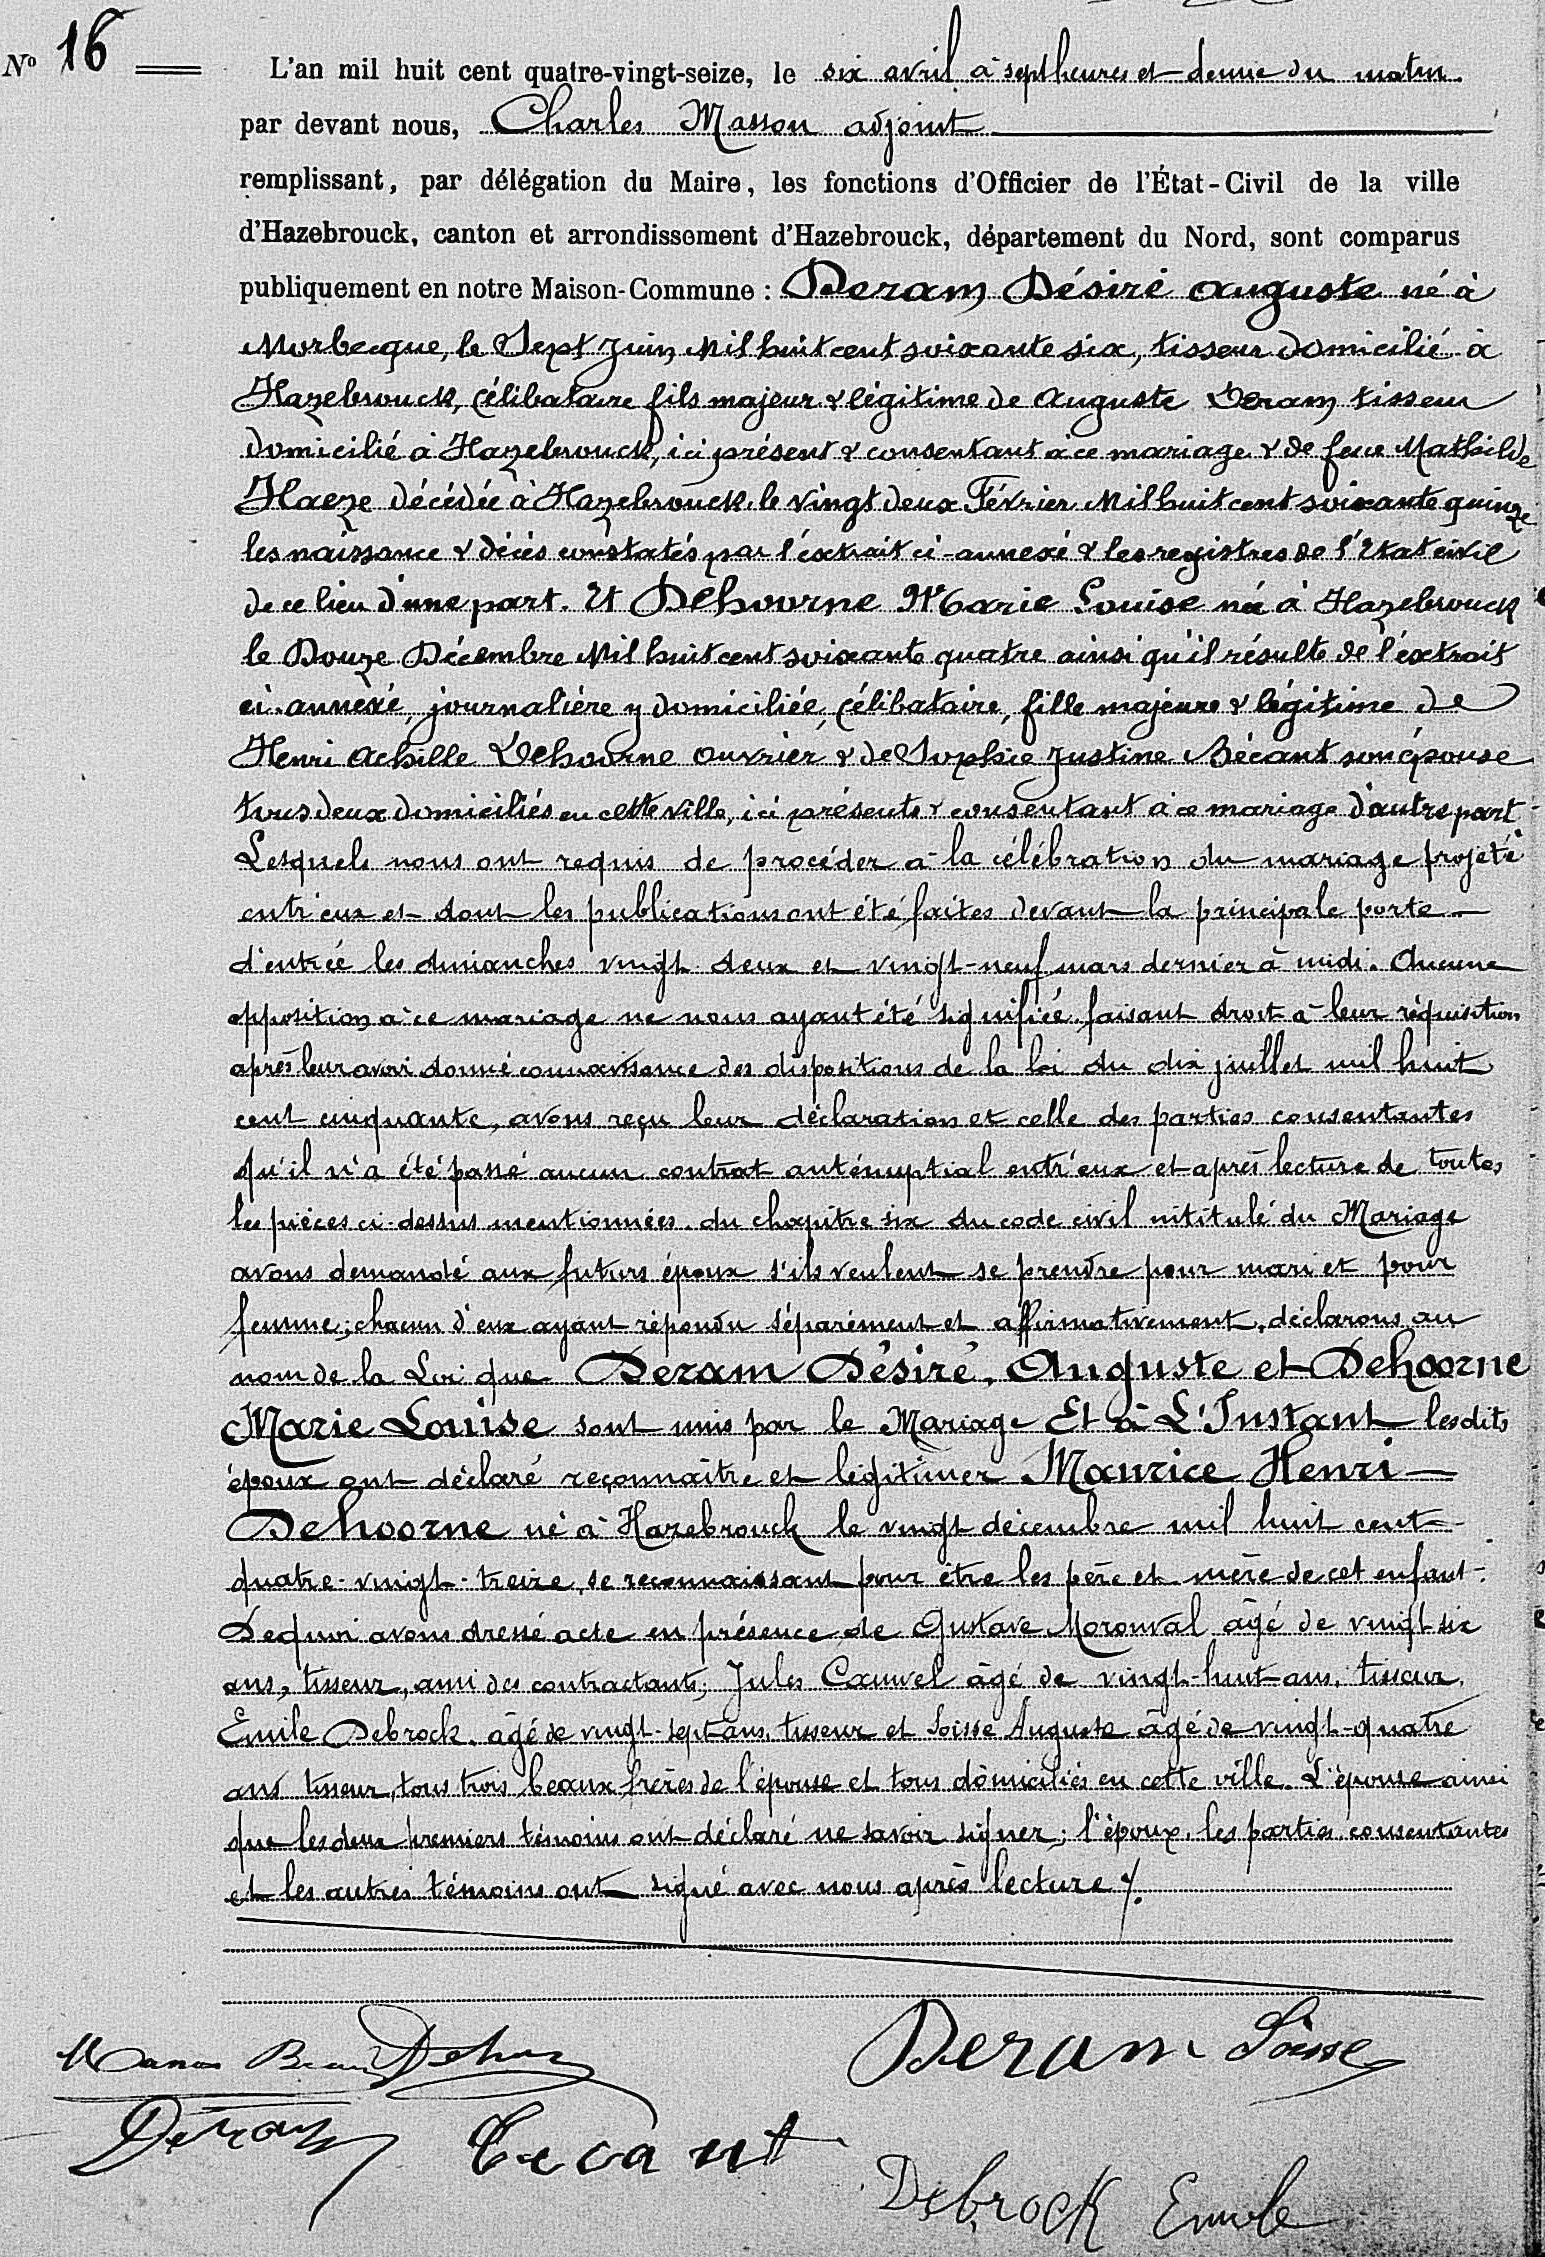 N° 16
L'an mil huit cent quatre-vingt-seize, le six avril à sept heures et demie du matin
par devant nous, Charles Masson adjoint
remplissant, par délégation du Maire, les fonctions d'Officier de l'État-Civil de la ville
d'Hazebrouck, canton et arrondissement d'Hazebrouck, département du Nord, sont comparus
publiquement en notre Maison-Commune : Deram Désiré Auguste né à
Morbecque, le Sept Juin Mil huit cent soixante six, tisseur domicilié à
Hazebrouck, célibataire fils majeur & légitime de Auguste Deram tisseur
domicilié à Hazebrouck, ici présent & consentant à ce mariage & de feue Mathilde
Haeze décédée à Hazebrouck le vingt deux Février Mil huit cent soixante quinze
les naissance & décès constatés par l'extrait ci-annexé & les registres de l'Etat civil
de ce lieu d'une part. Et Dehoorne Marie Louise née à Hazebrouck
le Douze Décembre Mil huit cent soixante quatre ainsi qu'il résulte de l'extrait
ci-annexé, journalière y domiciliée, célibataire, fille majeure & légitime de
Henri Achille Dehoorne ouvrier & de Sophie Justine Bécant son épouse
tous deux domiciliés en cette ville, ici présents & consentant à ce mariage d'autre part
Lesquels nous ont requis de procéder à la célébration du mariage projeté
entr'eux et dont les publications ont été faites devant la principale porte
d'entrée les dimanches vingt-deux et vingt-neuf mars dernier à midi. Aucune
opposition à ce mariage ne nous ayant été signifiée faisant droit à leur réquisition
après leur avoir donné connaissance des dispositions de la loi du dix juillet mil huit
cent cinquante, avons reçu leur déclaration et celle des parties consentantes
qu'il n'a été passé aucun contrat anténuptial entr'eux et après lecture de toutes
les pièces ci-dessus mentionnées du chapitre six du code civil intitulé du Mariage
avons demandé aux futurs époux s'ils veulent se prendre pour mari et pour
femme; chacun d'eux ayant répondu séparément et affirmativement, déclarons au
nom de la Loi que Deram Désiré, Auguste et Dehoorne
Marie Louise sont unis par le Mariage Et à L'Instant lesdits
époux ont déclaré reconnaître et légitimer Maurice Henri
Dehoorne né à Hazebrouck le vingt décembre mil huit cent
quatre-vingt-treize, se reconnaissant pour être les père et mère de cet enfant.
De quoi avons dressé acte en présence de Gustave Moronval âgé de vingt-six
ans, tisseur, ami des contractants; Jules Cauwel âgé de vingt-huit ans, tisseur,
Emile Debrock, âgé de vingt-sept ans, tisseur et Soisse Auguste âgé de vingt-quatre
ans tisseur, tous trois beaux frères de l'épouse et tous domiciliés en cette ville. L'épouse ainsi
que les deux premiers témoins ont déclaré ne savoir signer; l'époux, les parties consentantes
et les autres témoins ont signé avec nous après lecture ./.
Deram Soisse
Deram Becant
Debrock Emile